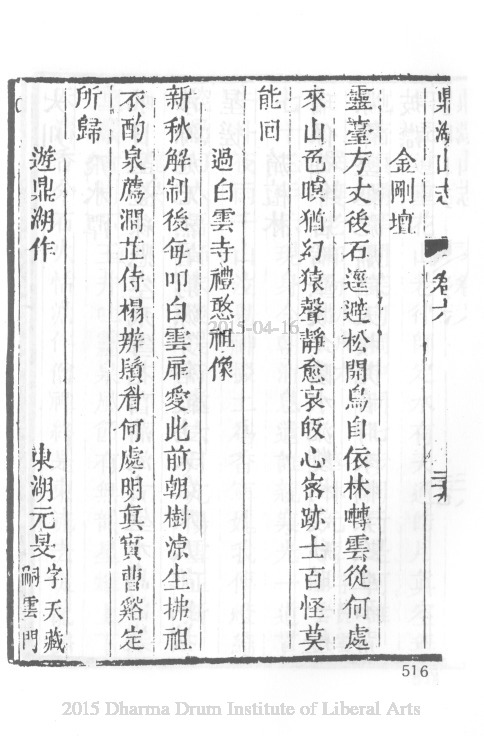 鼎湖山志
卷六
金剛壇
靈臺方丈後石逕避松開鳥自依林囀雲從何處
來山色暝猶幻猿聲靜愈哀皈心宻跡士百怪莫
能回
過白雲寺禮憨祖像
新秋解制後每叩白雲扉愛此前朝樹凉生拂祖
衣酌泉薦澗芷侍榻辦鬚眉何處明眞實曹谿定
所歸
遊鼎湖作 東湖元旻 字天藏 嗣雲門
516
2015-04-16
2015 Dharma Drum Institute of Liberal Arts